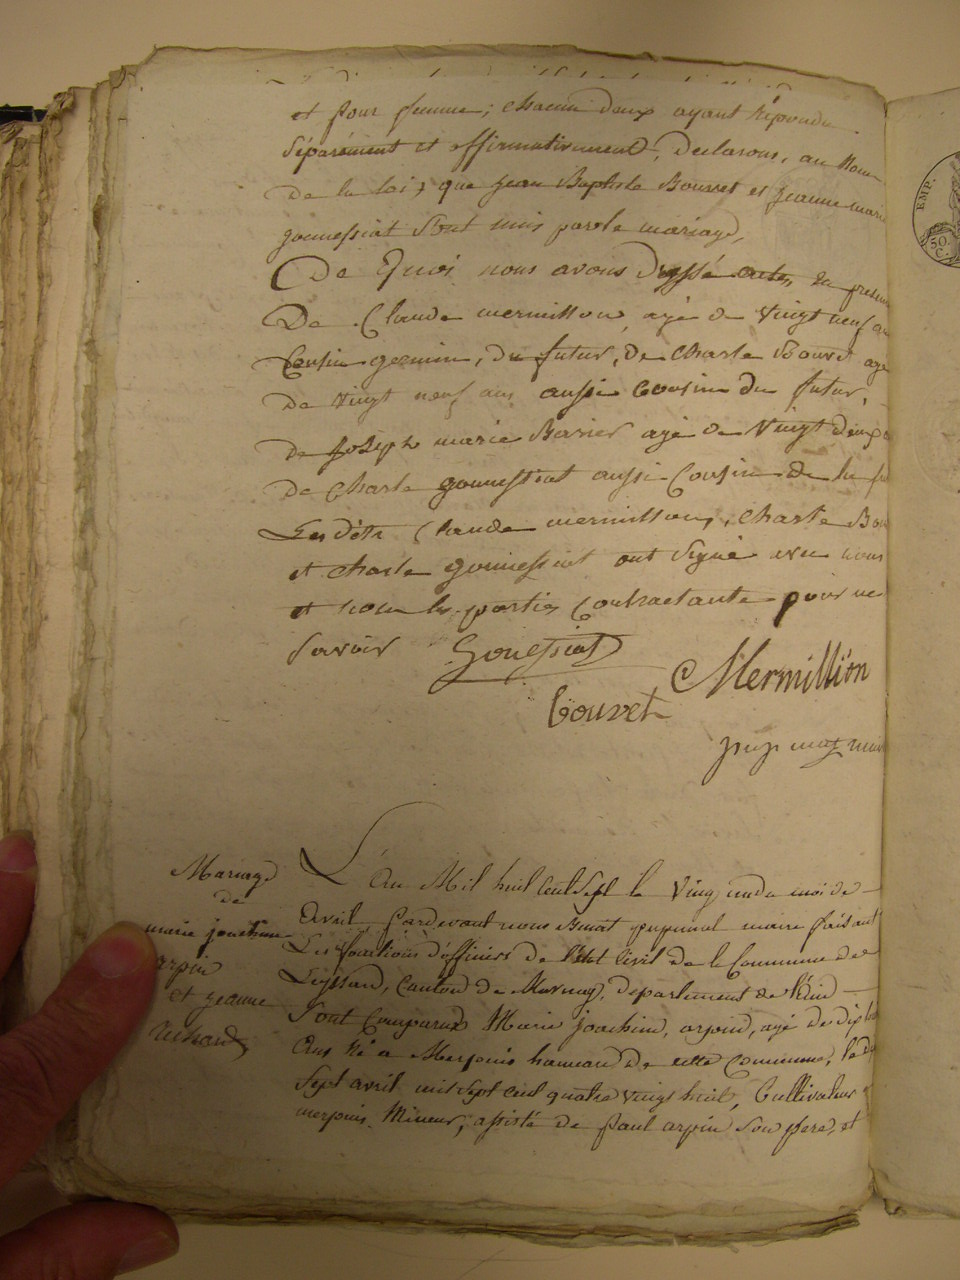 et pour femme; chacun deux ayant Répondu
séparément et affirmativement, Declarons, au Nom
De la loi, que jean Baptiste Bouvret et jeanne marie
gounessiat sont unis par le mariage,
De Quoi nous avons dressé acte, en presence
De Claude mermillion, agé de Vingt neuf an
Cousin germin, du futur, de charle Bouvet agé
De vingt neuf ans aussi Cousin du futur,
de Joseph marie Barier agé de Vingt deux
de Charle gounessiat aussi Cousin de la fu
Claude mermillion, Charle Bou
et charle gounessiat ont signé avec nous
et non les parties Contractante pour ne
savoir Gounessiat
Mermillion
Bouvet
maire
Mariage
de
marie joachim
arpin
et jeanne
L'An Mil huit Cent Sept le Vingt un du moi de
Avril, Pardevant nous maire faisant
Les fonctions d'officiers de l'état Civil de la Commune de
Leyssard, Canton de Mornay, departement de l'Ain
Sont Comparus Marie joachim, arpin, agé de dix
Ans Né a Merpuis hameau de cette Commune, le dix
Sept avril mil sept cent quatre vingt huit, Cultivateur
merpuis. Mineur, assisté de Paul arpin Son pere, et
EMP.
50
C.